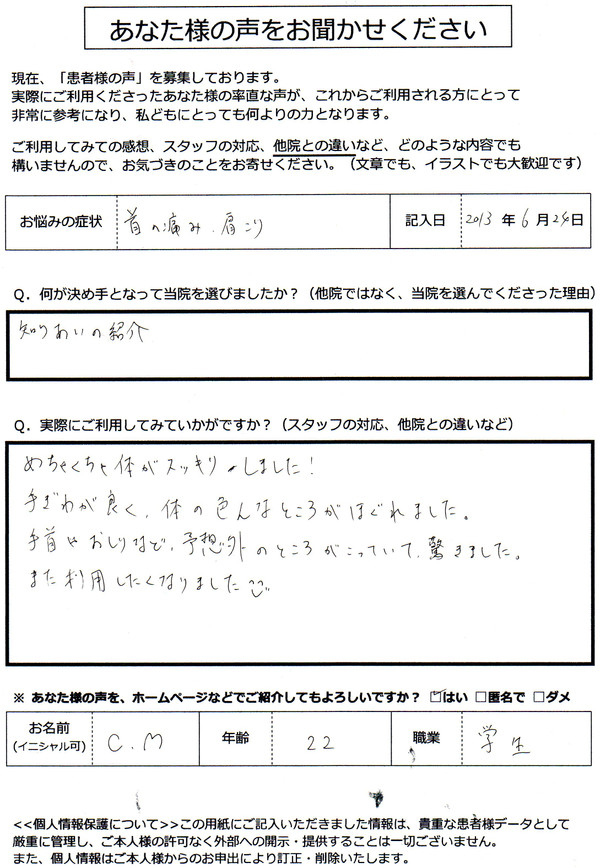 あなた様の声をお聞かせください
現在、「患者様の声」を募集しております。
実際にご利用くださったあなた様の率直な声が、これからご利用される方にとって
非常に参考になり、私どもにとっても何よりの力となります。
ご利用してみての感想、スタッフの対応、他院との違いなど、どのような内容でも
構いませんので、お気づきのことをお寄せください。（文章でも、イラストでも大歓迎です）
お悩みの症状 首の痛み、肩こり 記入日 2013 年 6 月 24日
Q. 何が決め手となって当院を選びましたか？（他院ではなく、当院を選んでくださった理由）
知りあいの紹介
Q. 実際にご利用してみていかがですか？（スタッフの対応、他院との違いなど）
めちゃくちゃ体がスッキリしました！
手ぎわが良く、体の色んなところがほぐれました。
手首やおしりなど、予想外のところがこっていて、驚きました。
また利用したくなりました
※ あなた様の声を、ホームページなどでご紹介してもよろしいですか？ ☑はい □匿名で □ダメ
お名前 (イニシャル可) C.M 年齢 22 職業 学生
<<個人情報保護について>>この用紙にご記入いただきました情報は、貴重な患者様データとして
厳重に管理し、ご本人様の許可なく外部への開示・提供することは一切ございません。
また、個人情報はご本人様からのお申出により訂正・削除いたします。